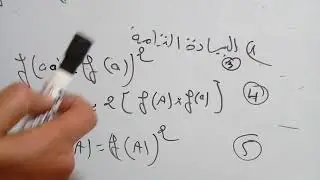 السيادة التامة
③
f(aa) = f(a)²
= 2[f(A) × f(a)] ④
A) = f(A)² ⑤